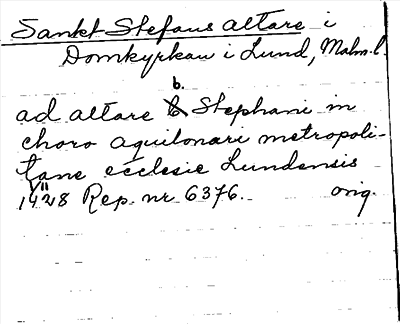 Sankt Stefans altare i
Domkyrkan i Lund, Malm. l.
b.
ad altare Stephani in
choro aquilonari metropoli-
tane ecclesie Lundensis
1428 Rep. nr 6376. orig.